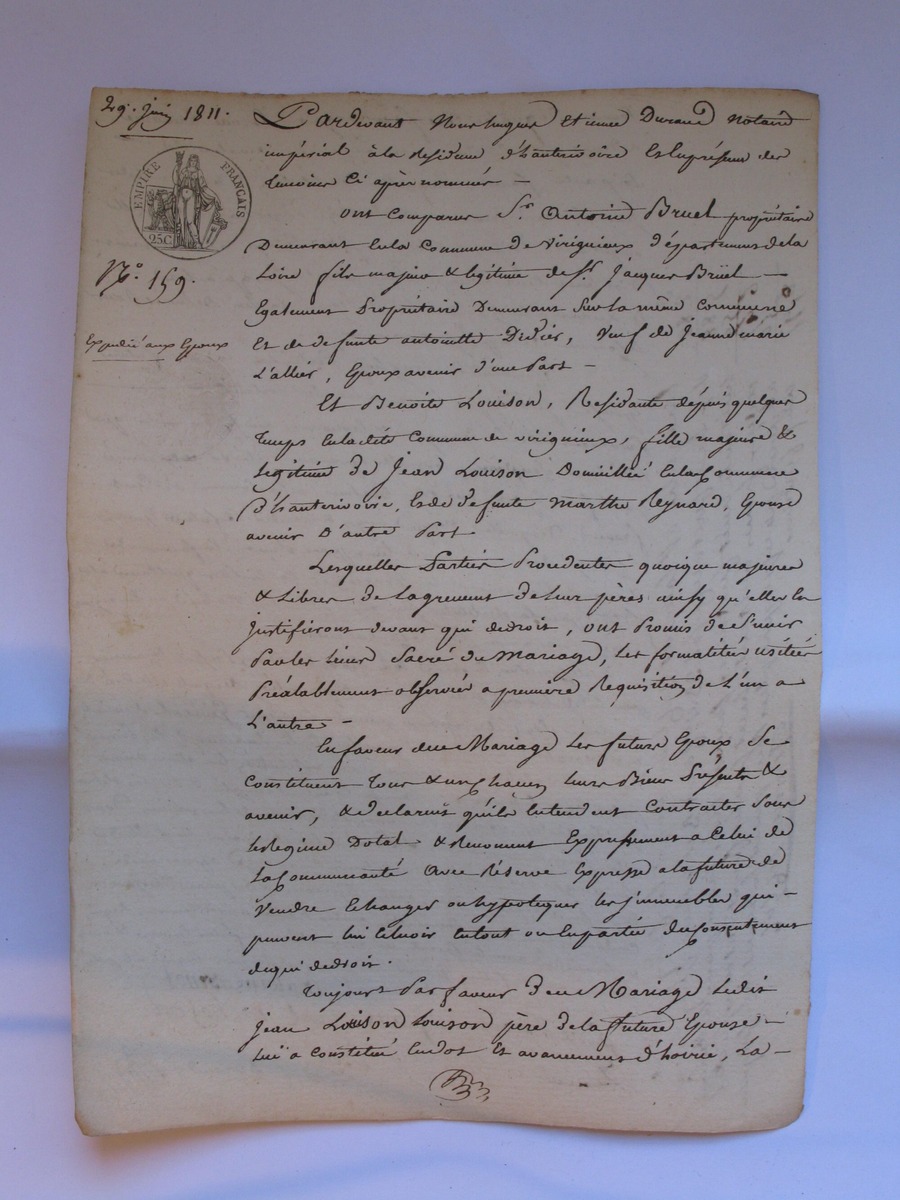 29. juin 1811.
EMPIRE FRANÇAIS
25C
N.° 159.
Expédié aux Epoux
Pardevant Nous hugues Etienne Durand Notaire
impérial à la Residence d'hauterivoire Et en présence des
Temoins Ci après nommés —
ont Comparus S.r Antoine Bruel propriétaire
Demeurant en la Commune de virignieux département de la
Loire fils majeur & legitime de S.r Jacques Brüel —
Egalement Propriétaire Demeurant sur la même Commune
Et de defunte antoinette Didier, veuf de Jeanne marie
L'allier, Epoux avenir d'une Part —
Et Benoite Louison, Residante depuis quelque
Temps en ladite Commune de virignieux, fille majeure &
legitime de Jean Louison Domicillié en la Commune
d'hauterivoire, et de defunte marthe Reynard, Epouse
avenir D'autre Part.
Lesquelles Parties Procedentes quoique majeures
& Libres de lagrement de leur pères ainsy qu'elles en
justifieront devant qui de droit, ont Promis de S'unir
Par les Liens Sacré du Mariage, les formalités usitées
Préalablement observées a première Requisition de L'un a
L'autre —
En faveur du Mariage les future Epoux Se
Constituent Tous & un Chacun leurs Biens Présents &
avenir, & declarent qu'ils entendent Contracter Sous
le Regime Dotal & Renoncent Expressement a Celui de
La Communauté avec Réserve Expresse a la future de
Vendre Echanger ou hypotequer les jmmeubles qui —
peuvent lui Echoir en tout ou en partie du Consentement
de qui de droit.
Toujours Par faveur du Mariage Ledit
jean Louison Louison père de la future Epouse —
Lui a Constitué en dot Et avancement d'hoirie, La —